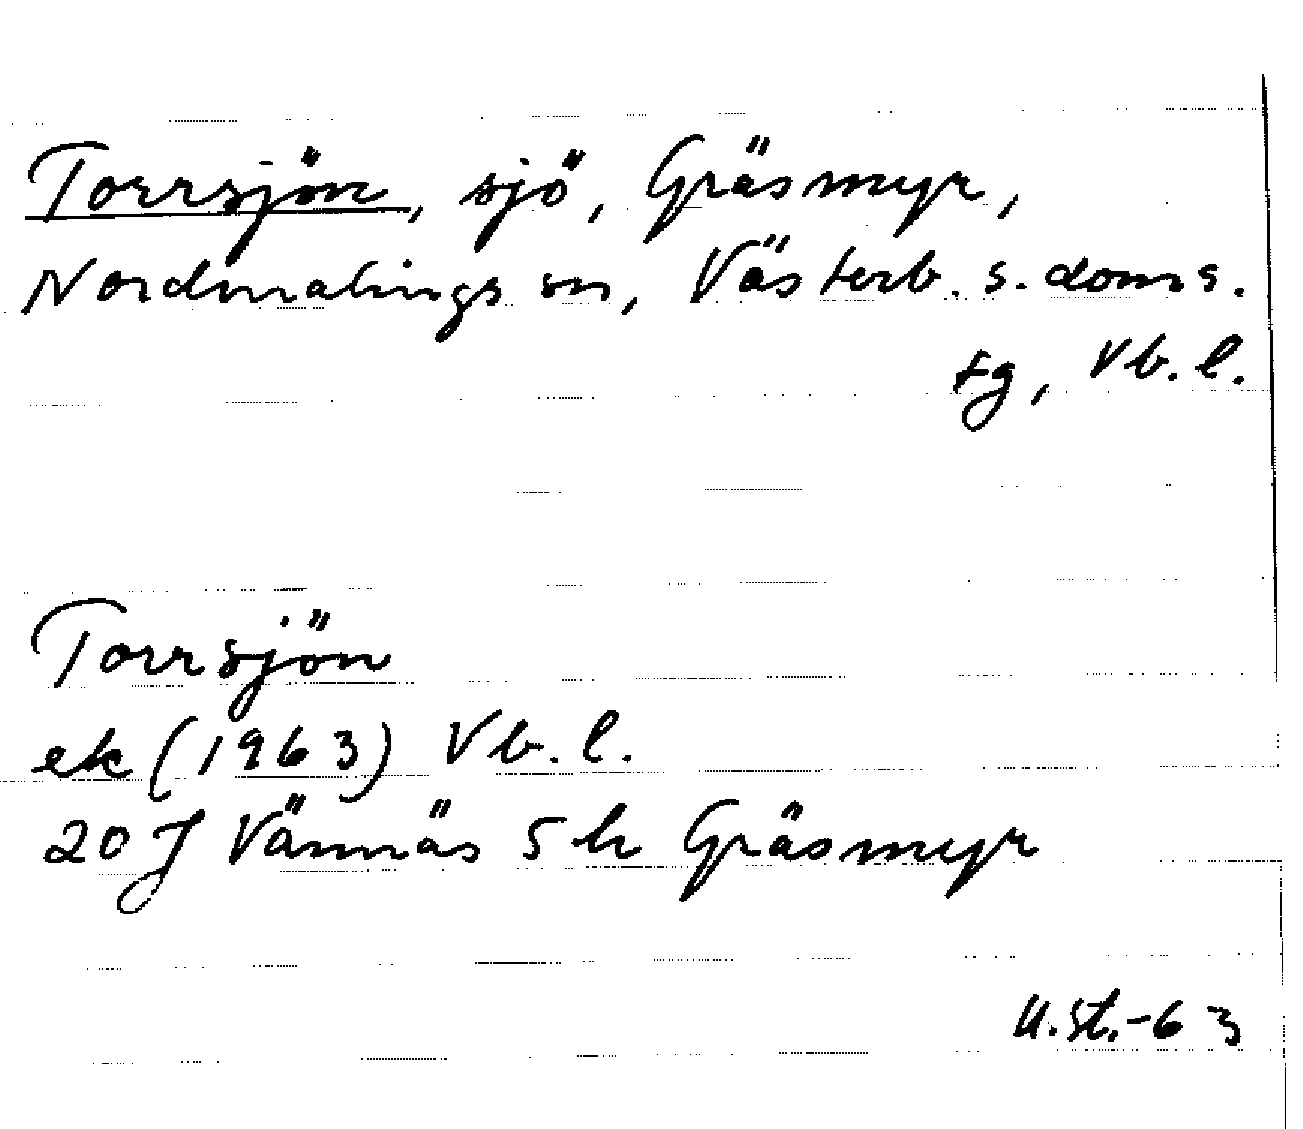 Torrsjön, sjö, Gräsmyr,
Nordmalings sn, Västerb. s. doms.
tg, Vb. l.
Torrsjön
ek (1963) Vb. l.
20 J Vännäs 5 h Gräsmyr
U. St. -63